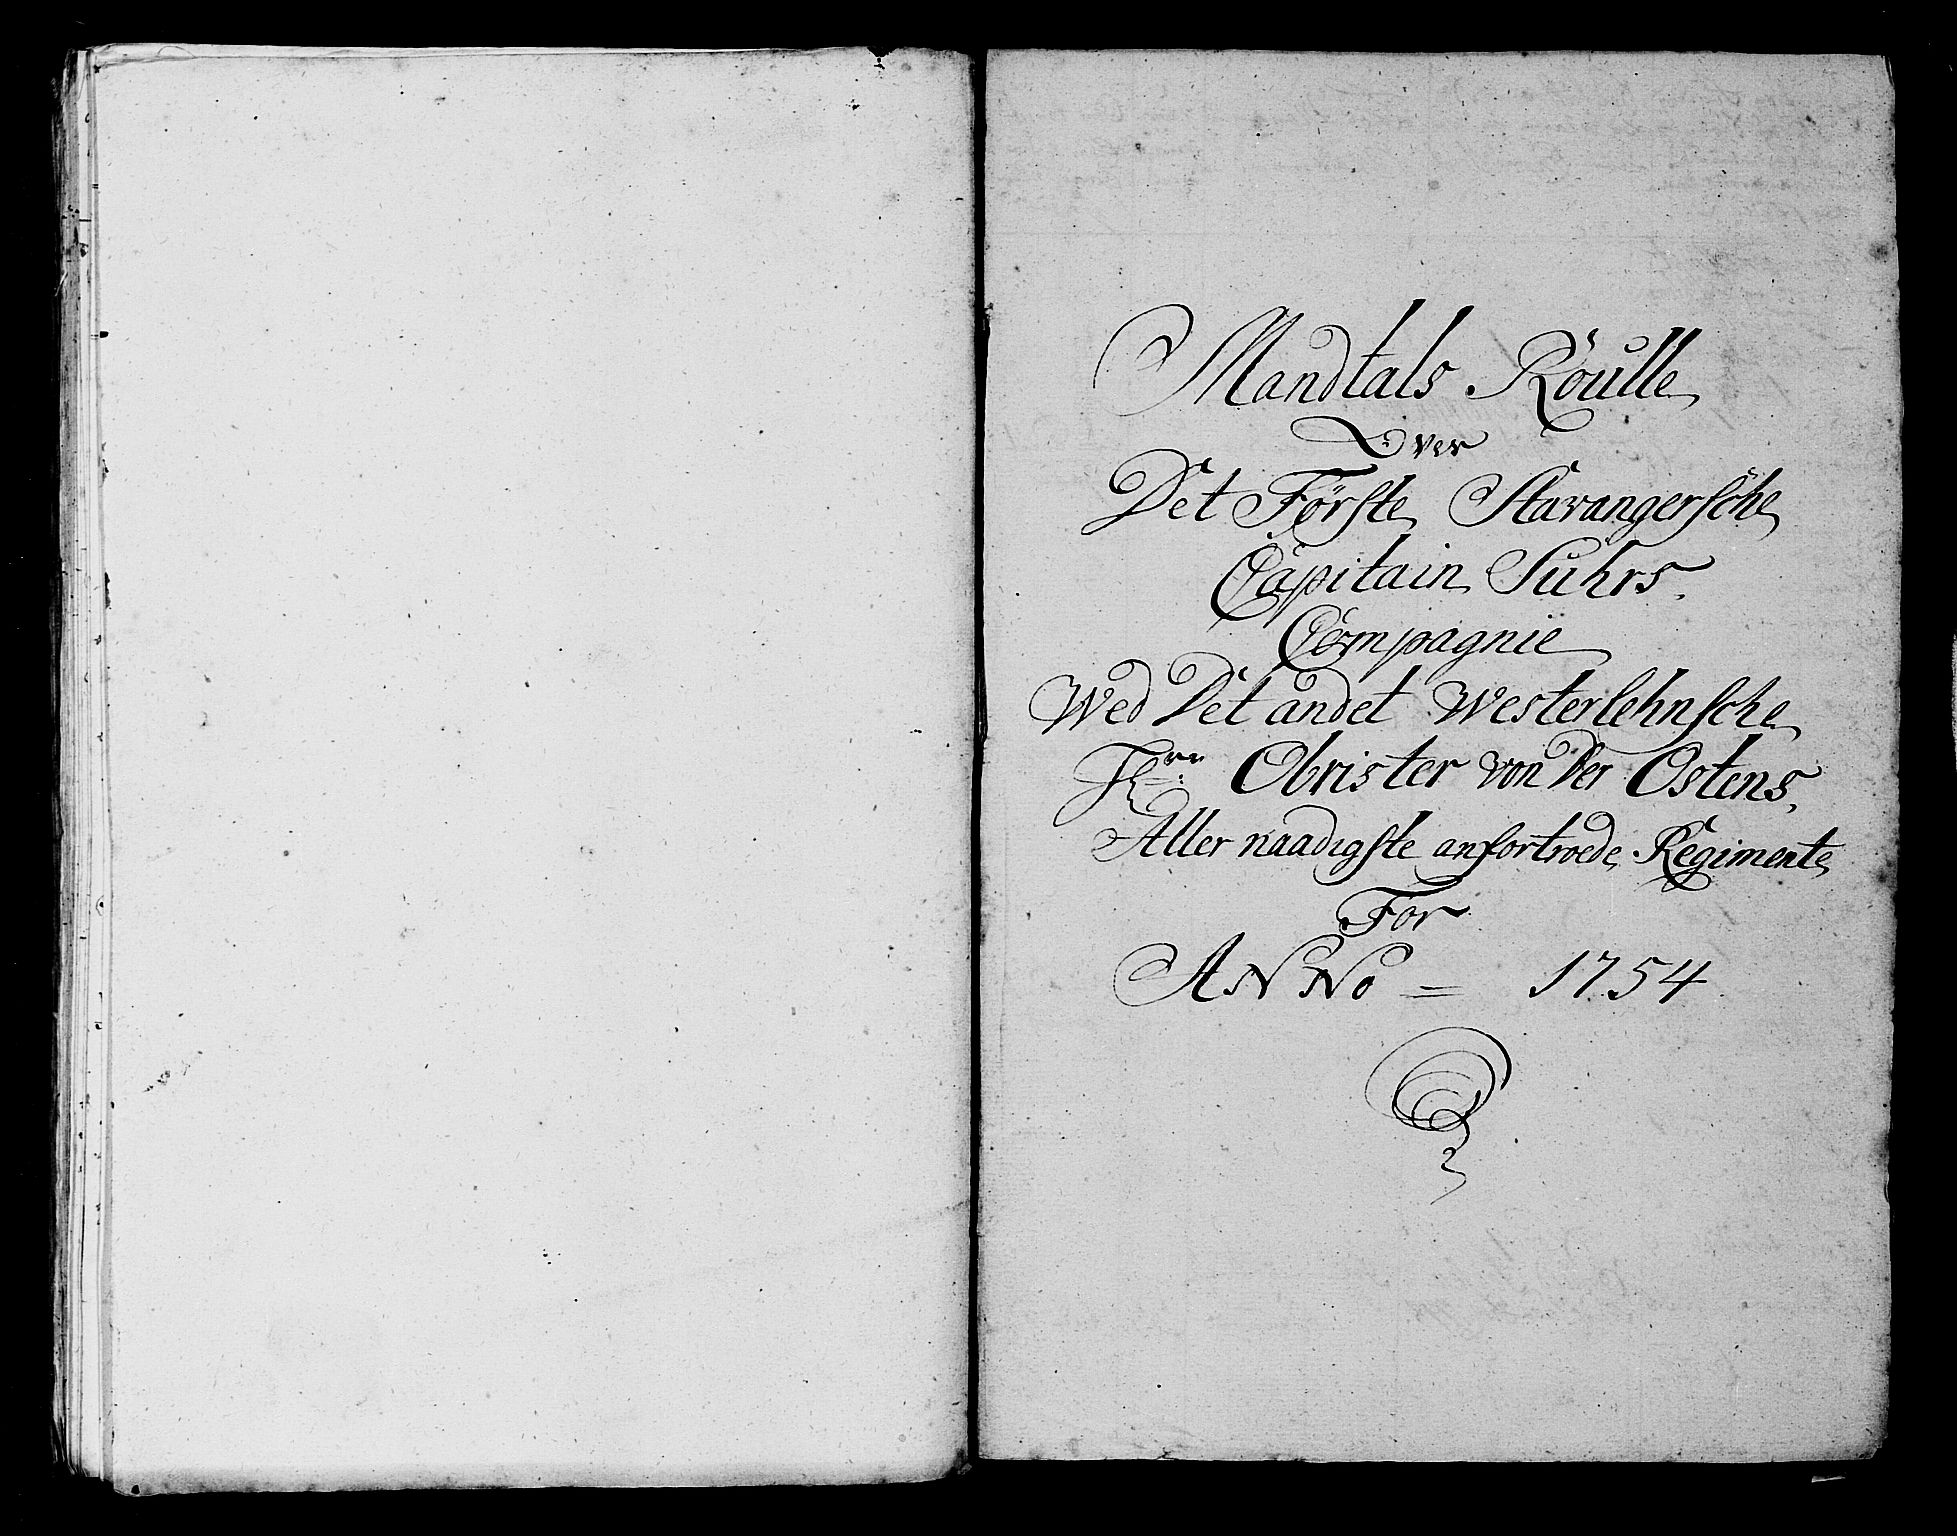 Mandtals Roulle
Over
Det Förste Stavangersche
Capitain Suhrs.
Compagnie
Wed Det andet Westerlehnsche
Hrr: Obrister von Der Ostens,
Aller naadigste anfortroede Regimente
For
ANNo = 1754